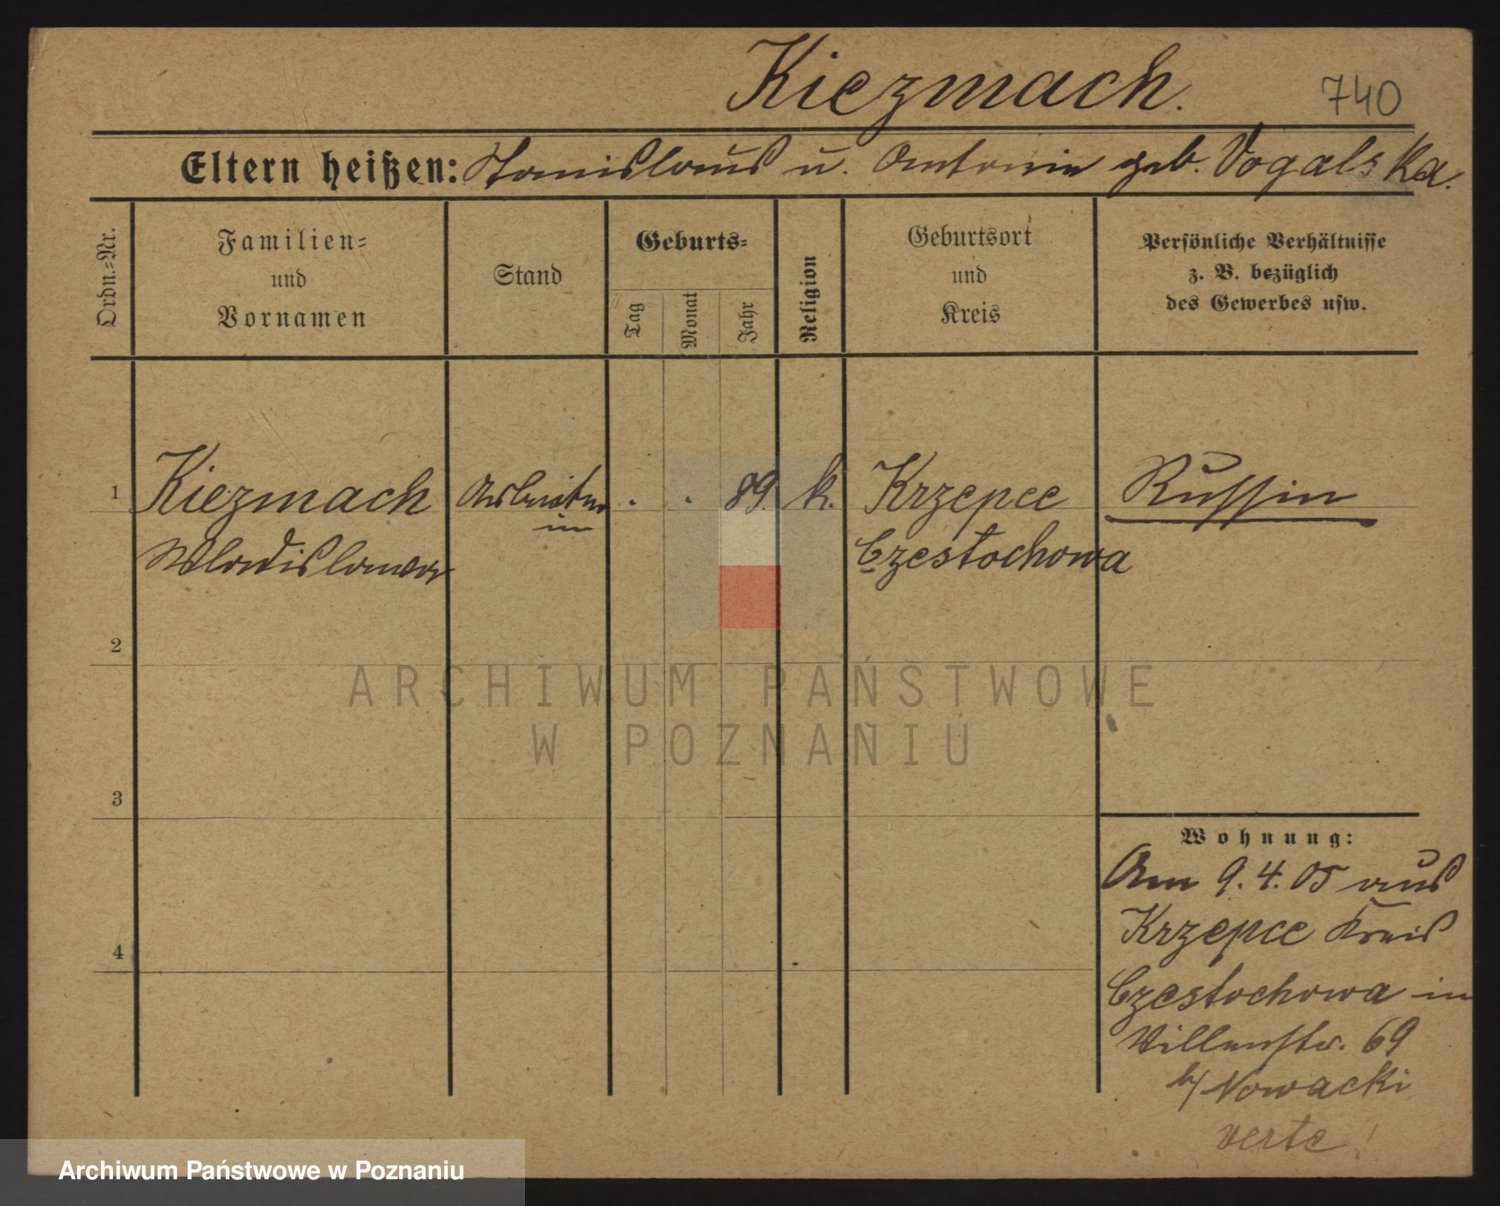 Kiezmach.
740
Eltern heißen: Stanislaus u. Antonie geb. Vogalska.
Ordn.=Nr.
Familien= und Vornamen
Stand
Geburts=
Tag
Monat
Jahr
Religion
Geburtsort und Kreis
Persönliche Verhältnisse z. B. bezüglich des Gewerbes usw.
1 Kiezmach Arbeiterin . . 89. k. Krzepce Russin
Wladislawa Czestochowa
2
3
4
Wohnung:
Am 9.4.05 aus
Krzepce Kreis
Czestochowa in
Villenstr. 69
b/ Nowacki
verte!
ARCHIWUM PAŃSTWOWE
W POZNANIU
Archiwum Państwowe w Poznaniu